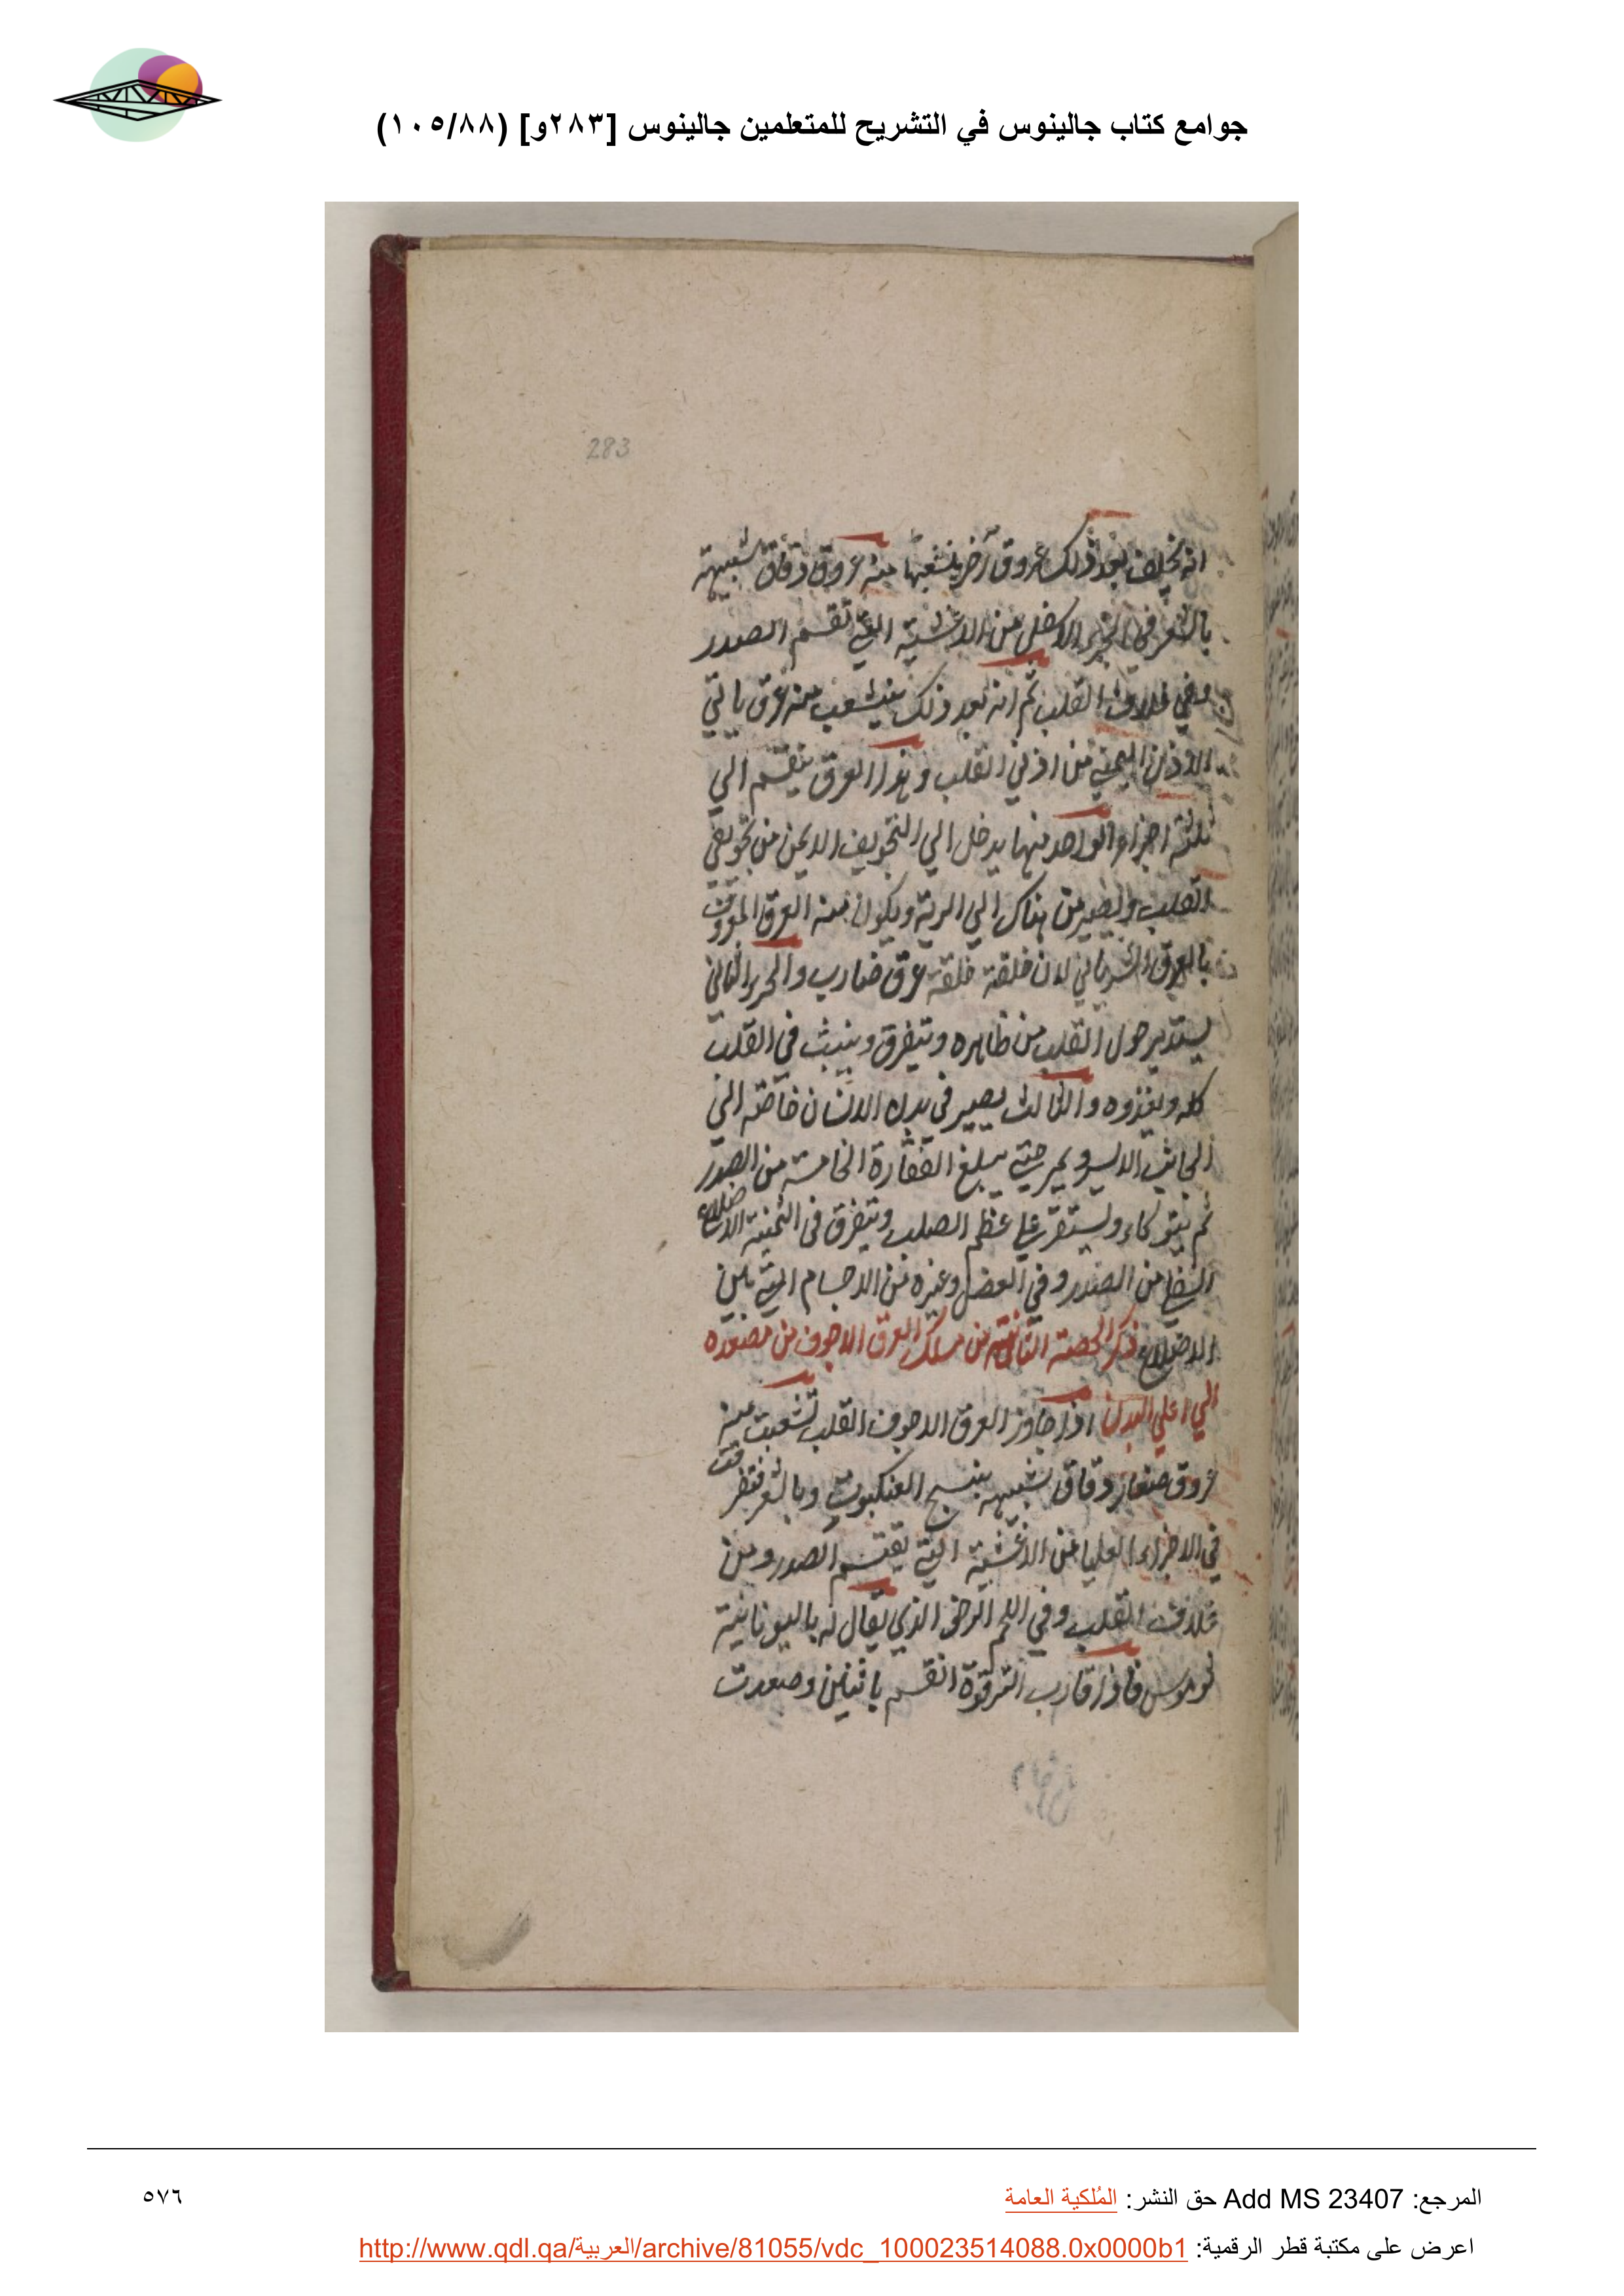 جوامع كتاب جالينوس في التشريح للمتعلمين جالينوس [٢٨٣و] (١٠٥/٨٨)
283
انه يخلف بعد ذلك عروق اخر ينشعبها منه عروق دقاق شبيهة
بالشعر في الجزء الاسفل من الاغشية التي تقسم الصدر
وفي غلاف القلب ثم انه بعد ذلك ينشعب منه عرق ياتي
الاذن اليمني من اذني القلب وهذا العرق ينقسم الي
ثلثة اجزاء الواحد منها يدخل الي التجويف الايمن من تجويفي
القلب ويصير من هناك الي الرية ويكون منه العرق المعروف
بالعرق الشرياني لان خلقته خلقة عرق ضارب والجزء الثاني
يستدير حول القلب من ظاهره ويتفرق وينبث في القلب
كله ويغذوه والثالث يصير في بدن الانسان خاصة الي
الجانب الايسر ويمر حتي يبلغ الفقارة الخامسة من الصدر
ثم يتوكاء ويستقر علي عظم الصلب ويتفرق في الثمنية الاضلاع
السفلي من الصدر وفي العضل وغيره من الاجسام التي بين
الاضلاع ذكر الحصة الثانية من مسلك العرق الاجوف من مصعده
الي اعلي البدن اذا جاوز العرق الاجوف القلب تشعبت منه
عروق صغار دقاق شبيهة بنسج العنكبوت وبالشعر فتفرقت
في الاجزاء العليا من الاغشية التي يقسم الصدر ومن
غلاف القلب وفي اللحم الرخو الذي يقال له باليونانية
ثوموس فاذا قارب الترقوة انقسم باثنين وصعدت
المرجع: Add MS 23407 حق النشر: المُلكية العامة
٥٧٦
اعرض على مكتبة قطر الرقمية: http://www.qdl.qa/العربية/archive/81055/vdc_100023514088.0x0000b1